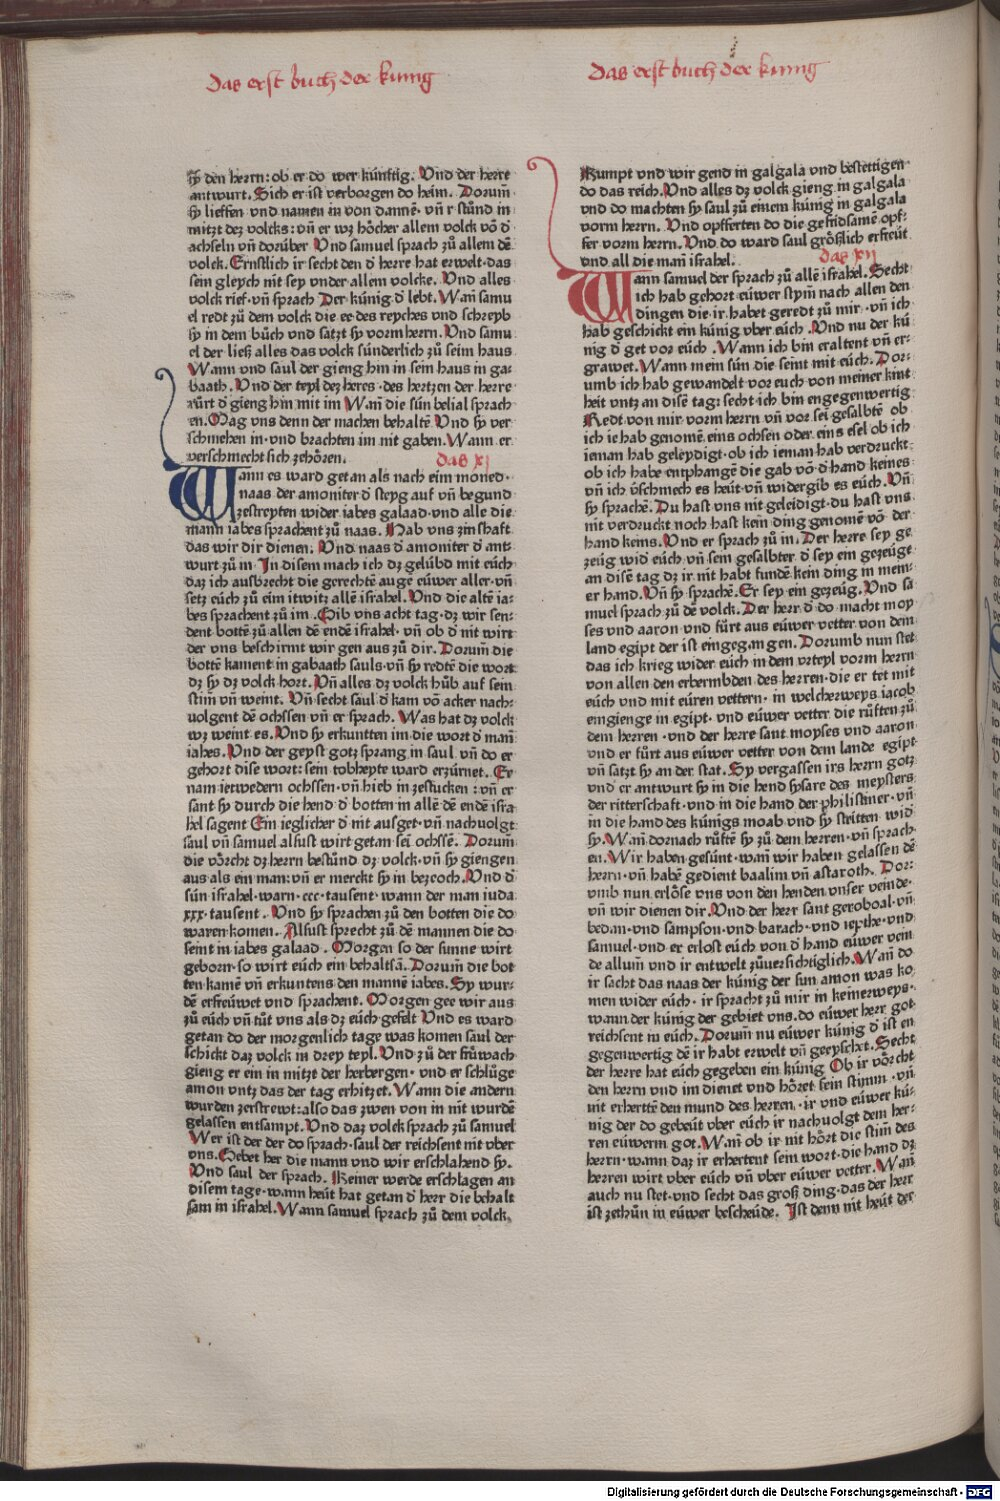 das erst buch der kung
sy den herrn: ob er do wer kúnftig. Vnd der herre
antwurt. Sich er ist verborgen do heim. Dorum̄
sy lieffen vnd namen in von dannē· vn̄ er stůnd in
mitzt dez volcks: vn̄ er wz hócher allem volck vō d̄
achseln vn̄ dorúber Vnd samuel sprach zů allem dē
volck. Ernstlich ir secht den d̄ herre hat erwelt· das
sein gleych nit sey vnder allem volcke. Vnd alles
volck rief· vn̄ sprach Der kúnig d̄ lebt. Wan̄ samu
el redt zů dem volck die ee des reyches vnd schreyb
sy in dem bůch vnd satzt sy vorm herrn. Vnd samu
el der ließ alles das volck súnderlich zů seim haus
Wann vnd saul der gieng hin in sein haus in ga-
baath. Vnd der teyl dez heres· des hertzen der herre
rúrt d̄ gieng hin mit im Wan̄ die sún belial sprach
en. Mag vns denn der machen behaltē· Vnd sy ver
schmehen in· vnd brachten im nit gaben. Wann er
verschmecht sich zehóren.
das xj
Wann es ward getan als nach eim moned·
naas der amoniter d̄ steyg auf vn̄ begund
zestreyten wider iabes galaad· vnd alle die
mann iabes sprachent zů naas. Hab vns zinshaft
das wir dir dienen. Vnd naas d̄ amoniter d̄ ant
wurt zů in· In disem mach ich dz gelúbd mit eúch
daz ich ausbrecht die gerechtē auge eúwer aller· vn̄
setz euch zů eim itwitz allē israhel. Vnd die altē ia-
bes sprachent zů im. Gib vns acht tag· dz wir sen-
dent bottē zů allen dē endē israhel· vn̄ ob d̄ nit wirt
der vns beschirmt wir gen aus zů dir. Dorum̄ die
bottē kament in gabaath sauls· vn̄ sy redtē die wort
dz sy dz volck hort. Vn̄ alles dz volck hůb auf sein
stim̄ vn̄ weint. Vn̄ secht saul d̄ kam vō acker nach-
uolgent dē ochssen vn̄ er sprach. Was hat dz volck
wz weint es. Vnd sy erkuntten im die wort d̄ man̄
iabes. Vnd der geyst gotz sprang in saul vn̄ do er
gehort dise wort: sein tobheyte ward erzúrnet. Er
nam ietwedern ochssen· vn̄ hieb in zestucken: vn̄ er
sant sy durch die hend d̄ botten in allē dē endē isra
hel sagent Ein ieglicher d̄ nit ausget· vn̄ nachuolgt
saul vn̄ samuel alsust wirt getan sei ochssē. Dorum̄
die vórcht dz herrn bestůnd dz volck· vn̄ sy giengen
aus als ein man: vn̄ er merckt sy in bezecoch. Vnd d̄
sún israhel· warn· ccc· tausent· wann der man iuda
xxx· tausent. Vnd sy sprachen zů den botten die do
waren komen. Alsust sprecht zů dē mannen die do
seint in iabes galaad. Morgen so der sunne wirt
geborn· so wirt eúch ein behaltsā. Dorum̄ die bot
ten kamē vn̄ erkuntens den mannē iabes. Sy wur-
dē erfreúwet vnd sprachent. Morgen gee wir aus
zů eúch vn̄ tůt vns als dz eúch gefelt Vnd es ward
getan do der morgenlich tage was komen saul der
schickt daz volck in drey teyl. Vnd zů der frúwach
gieng er ein in mitzt der herbergen· vnd er schlúge
amon vntz das der tag erhitzet. Wann die andern
wurden zerstrewt: also das zwen von in nit wurdē
gelassen entsampt. Vnd daz volck sprach zů samuel
Wer ist der der do sprach· saul der reichsent nit vber
vns. Gebet her die mann vnd wir erschlahend sy.
Vnd saul der sprach. Keiner werde erschlagen an
disem tage· wann heút hat getan d̄ herr die behalt
sam in israhel. Wann samuel sprach zů dem volck.
das erst buch der kung
Kumpt vnd wir gend in galgala vnd bestettigen
do das reich. Vnd alles dz volck gieng in galgala
vnd do machten sy saul zů einem kúnig in galgala
vorm herrn. Vnd opfferten do die gefridsamē opf-
fer vorm herrn. Vnd do ward saul gróßlich erfreút
vnd all die man̄ israhel.
das xij
Wann samuel der sprach zů allē israhel. Secht
ich hab gehort eúwer stym̄ nach allen den
dingen die ir habet geredt zů mir· vn̄ ich
hab geschickt ein kúnig vber eúch. Vnd nu der kú
nig d̄ get vor eúch. Wann ich bin eraltent vn̄ er-
grawet. Wann mein sún die seint mit eúch. Dor-
umb ich hab gewandelt vor euch von meiner kint
heit vntz an disē tag: secht ich bin engegenwertig
Redt von mir vorm herrn vn̄ vor sei gesalbtē· ob
ich ie hab genomē eins ochsen oder eins esel ob ich
ieman hab geleydigt· ob ich ieman hab verdruckt·
ob ich habe entphangē die gab vō d̄ hand keines·
vn̄ ich v̄schmech es heút· vn̄ widergib es eúch. Vn̄
sy sprachē. Du hast vns nit geleidigt· du hast vns
nit verdruckt noch hast kein ding genomē vō der
hand keins. Vnd er sprach zů in. Der herre sey ge
zeúg wid eúch vn̄ sein gesalbter d̄ sey ein gezeúge
an disē tag dz ir nit habt fundē kein ding in mein-
er hand. Vn̄ sy sprachē. Er sey ein gezeúg. Vnd sa
muel sprach zů dē volck. Der herr d̄ do macht moy
ses vnd aaron· vnd fúrt aus eúwer vetter von dem
land egipt der ist eingegangen. Dorumb nun stet
das ich krieg wider eúch in dem vrteyl vorm herrn
von allen den erbermbden des herren· die er tet mit
eúch vnd mit eúren vettern· in welcherweys iacob
eingienge in egipt· vnd eúwer vetter die rúften zů
dem herren· vnd der herre sant moyses vnd aaron
vnd er fúrt aus eúwer vetter von dem lande egipt
vn̄ satzt sy an der stat. Sy vergassen irs herrn gotz
vnd er antwurt sy in die hend sysare des meysters
der ritterschaft· vnd in die hand der philistiner· vn̄
in die hand des kúnigs moab vnd sy stritten wid
sy. Wan̄ dornach rúftē sy zů dem herren· vn̄ sprach
en. Wir haben gesúnt· wan̄ wir haben gelassen dē
herrn· vn̄ habē gedient baalim vn̄ astaroth. Dor-
vmb nun erlóse vns von den henden vnser veinde·
vn̄ wir dienen dir. Vnd der herr sant geroboal· vn̄
bedan· vnd sampson· vnd barach· vnd iepthe· vnd
samuel· vnd er erlost eúch von d̄ hand eúwer vein
de allum̄ vnd ir entwelt zůuersichtiglich. Wan̄ do
ir sacht das naas der kúnig der sun amon was ko
men wider eúch· ir spracht zů mir in keinerweys·
wann der kúnig der gebiet vns. do eúwer herr got
reichsent in eúch. Dorum̄ nu eúwer kúnig d̄ ist en
gegenwertig dē ir habt erwelt vn̄ geeyscht. Secht
der herre hat eúch gegeben ein kúnig Ob ir vórcht
den herrn vnd im dienet vnd hóret sein stimm· vn̄
nit erherttē den mund des herren· ir vnd eúwer kú-
nig der do gebeút vber eúch ir nachuolgt dem her-
ren eúwerm got. Wan̄ ob ir nit hórt die stim̄ des
herrn· wann daz ir erhertent sein wort· die hand dz
herren wirt vber eúch vn̄ vber eúwer vetter. Wan̄
auch nu stet· vnd secht das groß ding· das der herr
ist zethůn in eúwer bescheúde. Ist denn nit heút der
Digitalisierung gefördert durch die Deutsche Forschungsgemeinschaft · DFG